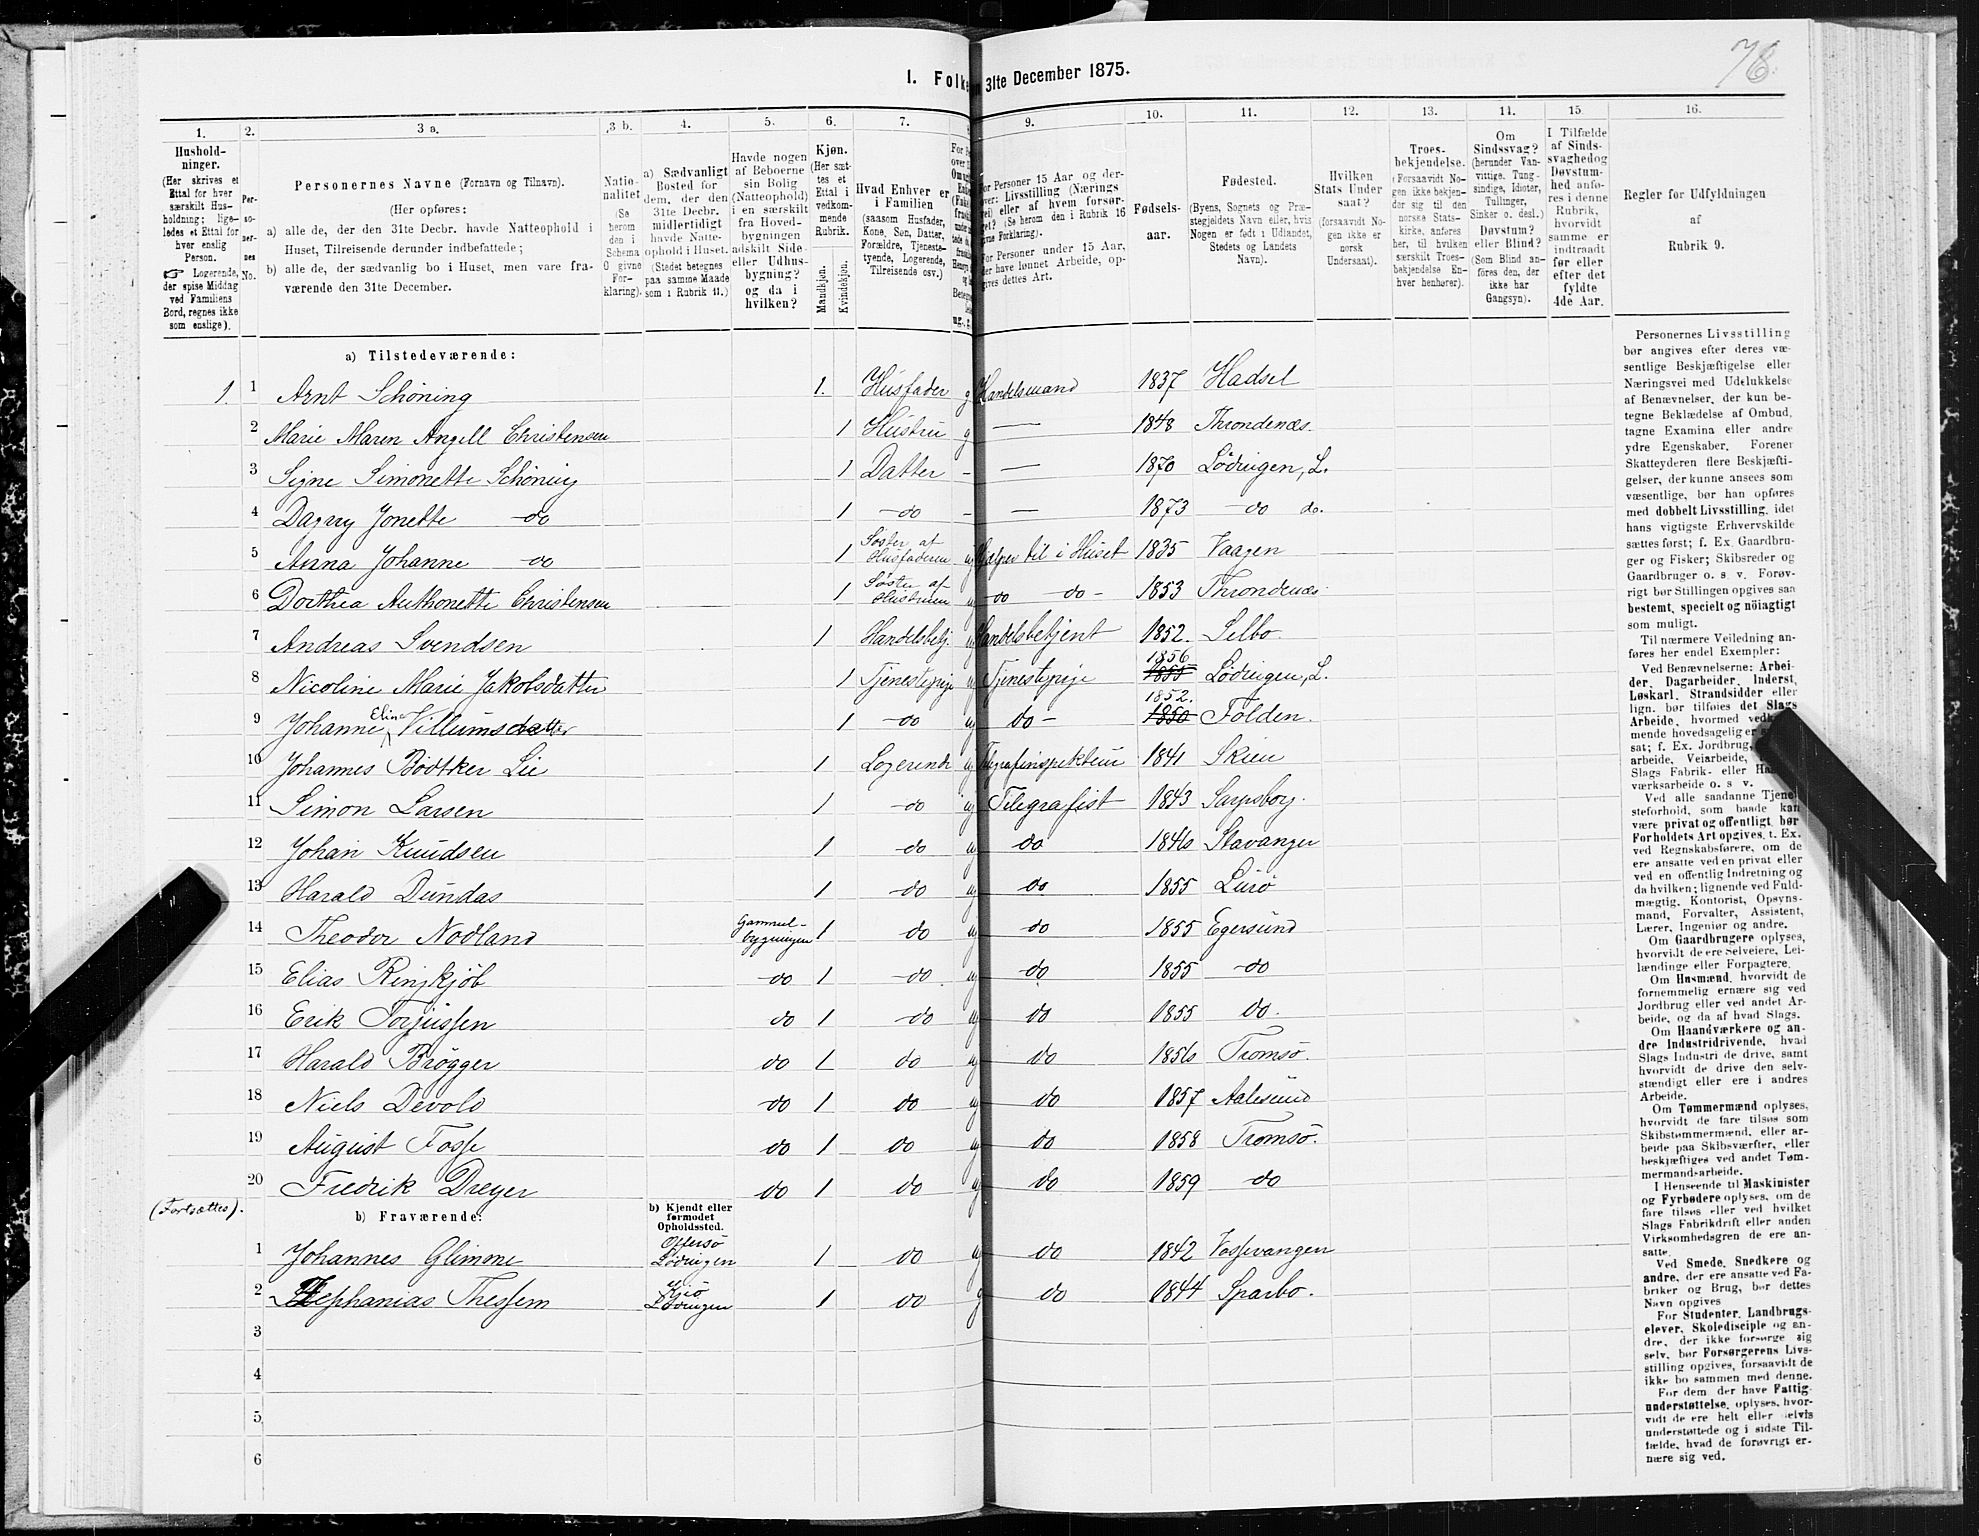 78.
I. Folke
31te December 1875.
1.
Hushold-
ninger.
(Her skrives et
Ettal for hver
særskilt Hus-
holdning; lige-
ledes et Ettal for
hver enslig
Person.
☞ Logerende,
der spise Middag
ved Familiens
Bord, regnes ikke
som enslige).
2.
Per-
so-
ner-
nes
No.
3 a.
Personernes Navne (Fornavn og Tilnavn).
(Her opføres:
a) alle de, der den 31te Decbr. havde Natteophold i
Huset, Tilreisende derunder indbefattede;
b) alle de, der sædvanlig bo i Huset, men vare fra-
værende den 31te December.
3 b.
Natio-
nalitet
(Se
herom
den i
Schema
0 givne
For-
klaring).
4.
a) Sædvanligt
Bosted for
dem, der den
31te Decbr.
midlertidigt
havde Natte-
ophold i Huset.
(Stedet betegnes
paa samme Maade
som i Rubrik 11.)
5.
Havde nogen
af Beboerne
sin Bolig
(Natteophold)
i en særskilt
fra Hoved-
bygningen
adskilt Side-
eller Udhus-
bygning?
og da i
hvilken?
6.
Kjøn.
(Her sæt-
tes et
Ettal i
vedkom-
mende
Rubrik.
Mandkjøn.
Kvindekjøn.
7.
Hvad Enhver er
i Familien
(saasom Husfader,
Kone, Søn, Datter,
Forældre, Tjeneste-
tyende, Logerende,
Tilreisende osv.)
9.
For Personer 15 Aar og der-
over: Livsstilling (Nærings
vei) eller af hvem forsør-
get? (Se herom den i Rubrik 16
givne Forklaring).
For Personer under 15 Aar,
der have lønnet Arbeide, op-
gives dettes Art.
10.
Fødsels-
aar.
11.
Fødested.
(Byens, Sognets og Præ-
stegjeldets Navn eller, hvis
Nogen er født i Udlandet,
Stedets og Landets
Navn).
12.
Hvilken
Stats Under
saat?
(forsaavidt No-
gen ikke er
norsk
Undersaat).
13.
Troes-
bekjendelse.
(Forsaavidt No-
gen ikke bekjen-
der sig til den
norske Stats-
kirke, anføres
her, til hvilken
særskilt Troes-
bekjendelse En-
hver henhører).
14.
Om
Sindssvag?
(herunder Van-
vittige, Tung-
sindige, Idioter,
Tullinger,
Sinker o. desl.)
Døvstum?
eller Blind?
(Som Blind an-
føres den, der
ikke har
Gangsyn).
15.
I Tilfælde
af Sinds-
svaghedog
Døvstum-
hed anfø-
res i denne
Rubrik,
hvorvidt
samme er
indtraadt
før eller
efter det
fyldte
4de Aar.
16.
Regler før Udfyldningen
af
Rubrik 9.
a) Tilstedeværende:
1. 1 Arnt Schöning 1. Husfader g Handelsmand 1837 Hadsel
2 Marie Maren Angell Christensen 1 Hustru g — 1848 Throndenæs.
3 Signe Simonette Schöning 1 Datter - — 1870 Lödingen, L.
4 Dagny Jonette do 1 do - — 1873 do do.
5 Anna Johanne do 1 Søster af Husfaderen ug Hjælper til i Huset 1835 Vaagen
6 Dorthea Anthonette Christensen 1 Søster af Hustruen ug do do - 1853 Throndenæs.
7 Andreas Svendsen 1 Handelsbetj. ug Handelsbetjent 1852. Selbo.
8 Nicoline Marie Jakobsdatter 1 Tjenestepige ug Tjenestepige 1856 1855 Lödingen, L.
9 Johanne Elina Villumsdatter 1 do ug do - 1852. 1850 Folden.
10 Johannes Bödtker Lie 1 Logerende ug Telegrafinspekteur 1841 Skien
11 Simon Larsen 1 do ug Telegrafist 1843 Sarpsborg.
12 Johan Knudsen 1 do ug do 1846 Stavanger
13 Harald Dundas 1 do ug do 1855 Lurö
14 Theodor Nodland Gammel-bygningen 1 do ug do 1855 Egersund
15 Elias Ringkjöb do 1 do ug do 1855 do
16 Erik Torjussen do 1 do ug do 1855 do.
17 Harald Brögger do 1 do ug do 1856 Tromsö.
18 Niels Devold do 1 do ug do 1857 Aalesund
19 August Fosse do 1 do ug do 1858 Tromsö.
20 Fredrik Dreyer do 1 do ug do 1859 do
(Fortsættes).
b) Fraværende:
b) Kjendt eller
formodet
Opholdssted.
1 Johannes Glimme Offersö Lödingen 1 do ug do 1842 Vossevangen
2 Zephanias Thessem Kjiö Lödingen 1 do g do 1844 Sparbo.
3
4
5
6
Personernes Livsstilling
bør angives efter deres væ-
sentlige Beskjæftigelse eller
Næringsvei med Udelukkelse
af Benævnelser, der kun be-
tegne Beklædelse af Ombud,
tagne Examina eller andre
ydre Egenskaber. Forener
Skatteyderen flere Beskjæfti-
gelser, der kunne ansees som
væsentlige, bør han opføres
med dobbelt Livsstilling, idet
hans vigtigste Erhvervskilde
sættes først; f. Ex. Gaardbru-
ger og Fisker; Skibsreder og
Gaardbruger o. s. v. Forøv-
rigt bør Stillingen opgives saa
bestemt, specielt og nöiagtigt
som muligt.
Til nærmere Veiledning an-
føres her endel Exempler:
Ved Benævnelserne: Arbei-
der, Dagarbeider, Inderst,
Løskarl, Strandsidder eller
lign. bør tilføies det Slags
Arbeide, hvormed vedk
mende hovedsagelig er
sat; f. Ex. Jordbrug,
arbeide, Veiarbeide,
Slags Fabrik- eller Ha
værksarbeide o. s. v.
Ved alle saadanne Tjene
steforhold, som baade kan
være privat og offentligt, bør
Forholdets Art opgives, t. Ex.
ved Regnskabsførere, om de
ere ansatte ved en privat eller
ved en offentlig Indretning og
da hvilken; lignende ved Fuld-
mægtig, Kontorist, Opsyns-
mand, Forvalter, Assistent,
Lærer, Ingeniør og andre.
Om Gaardbrugere oplyses,
hvorvidt de ere Selveiere, Lei-
lændinge eller Forpagtere.
Om Husmænd, hvorvidt de
fornemmelig ernære sig ved
Jordbrug eller ved andet Ar-
beide, og da af hvad Slags.
Om Haandværkere og an-
dre Industridrivende, hvad
Slags Industri de drive, samt
hvorvidt de drive den selv-
stændigt eller ere i andres
Arbeide.
Om Tømmermænd oplyses,
hvorvidt de fare tilsøs som
Skibstømmermænd, eller ar-
beide paa Skibsværfter, eller
beskjæftiges ved andet Tøm-
mermandsarbeide.
I Henseende til Maskinister
og Fyrbødere oplyses, om de
fare tilsøs eller ved hvilket
Slags Fabrikdrift eller anden
Virksomhedsgren de ere an-
satte.
Ved Smede, Snedkere og
andre, der ere ansatte ved Fa-
briker og Brug, bør dettes
Navn opgives
For Studenter, Landbrugs-
elever, Skoledisciple og an-
dre, der ikke forsørge sig
selv, bør Forsørgerens Livs-
stilling opgives, forsaavidt de
ikke bo sammen med denne.
For dem, der have Fattig-
understøttelse, oplyses, hvor-
vidt de ere helt eller delvis
understøttede og i sidste Til-
fælde, hvad de forøvrigt er-
nære sig ved.